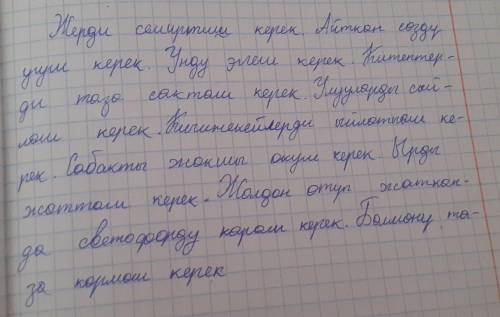 Жерди семиртиш керек. Айткан сөздү
угуш керек. Үндү эгеш керек. Китептер-
ди таза сакташ керек. Улууларды сый-
лаш керек. Кичинекейлерди ыйлатпаш ке-
рек. Сабакты жакшы окуш керек. Ырды
жатташ керек. Жолдон өтүп жаткан-
да светофорду караш керек. Бөлмөнү та-
за кармаш керек